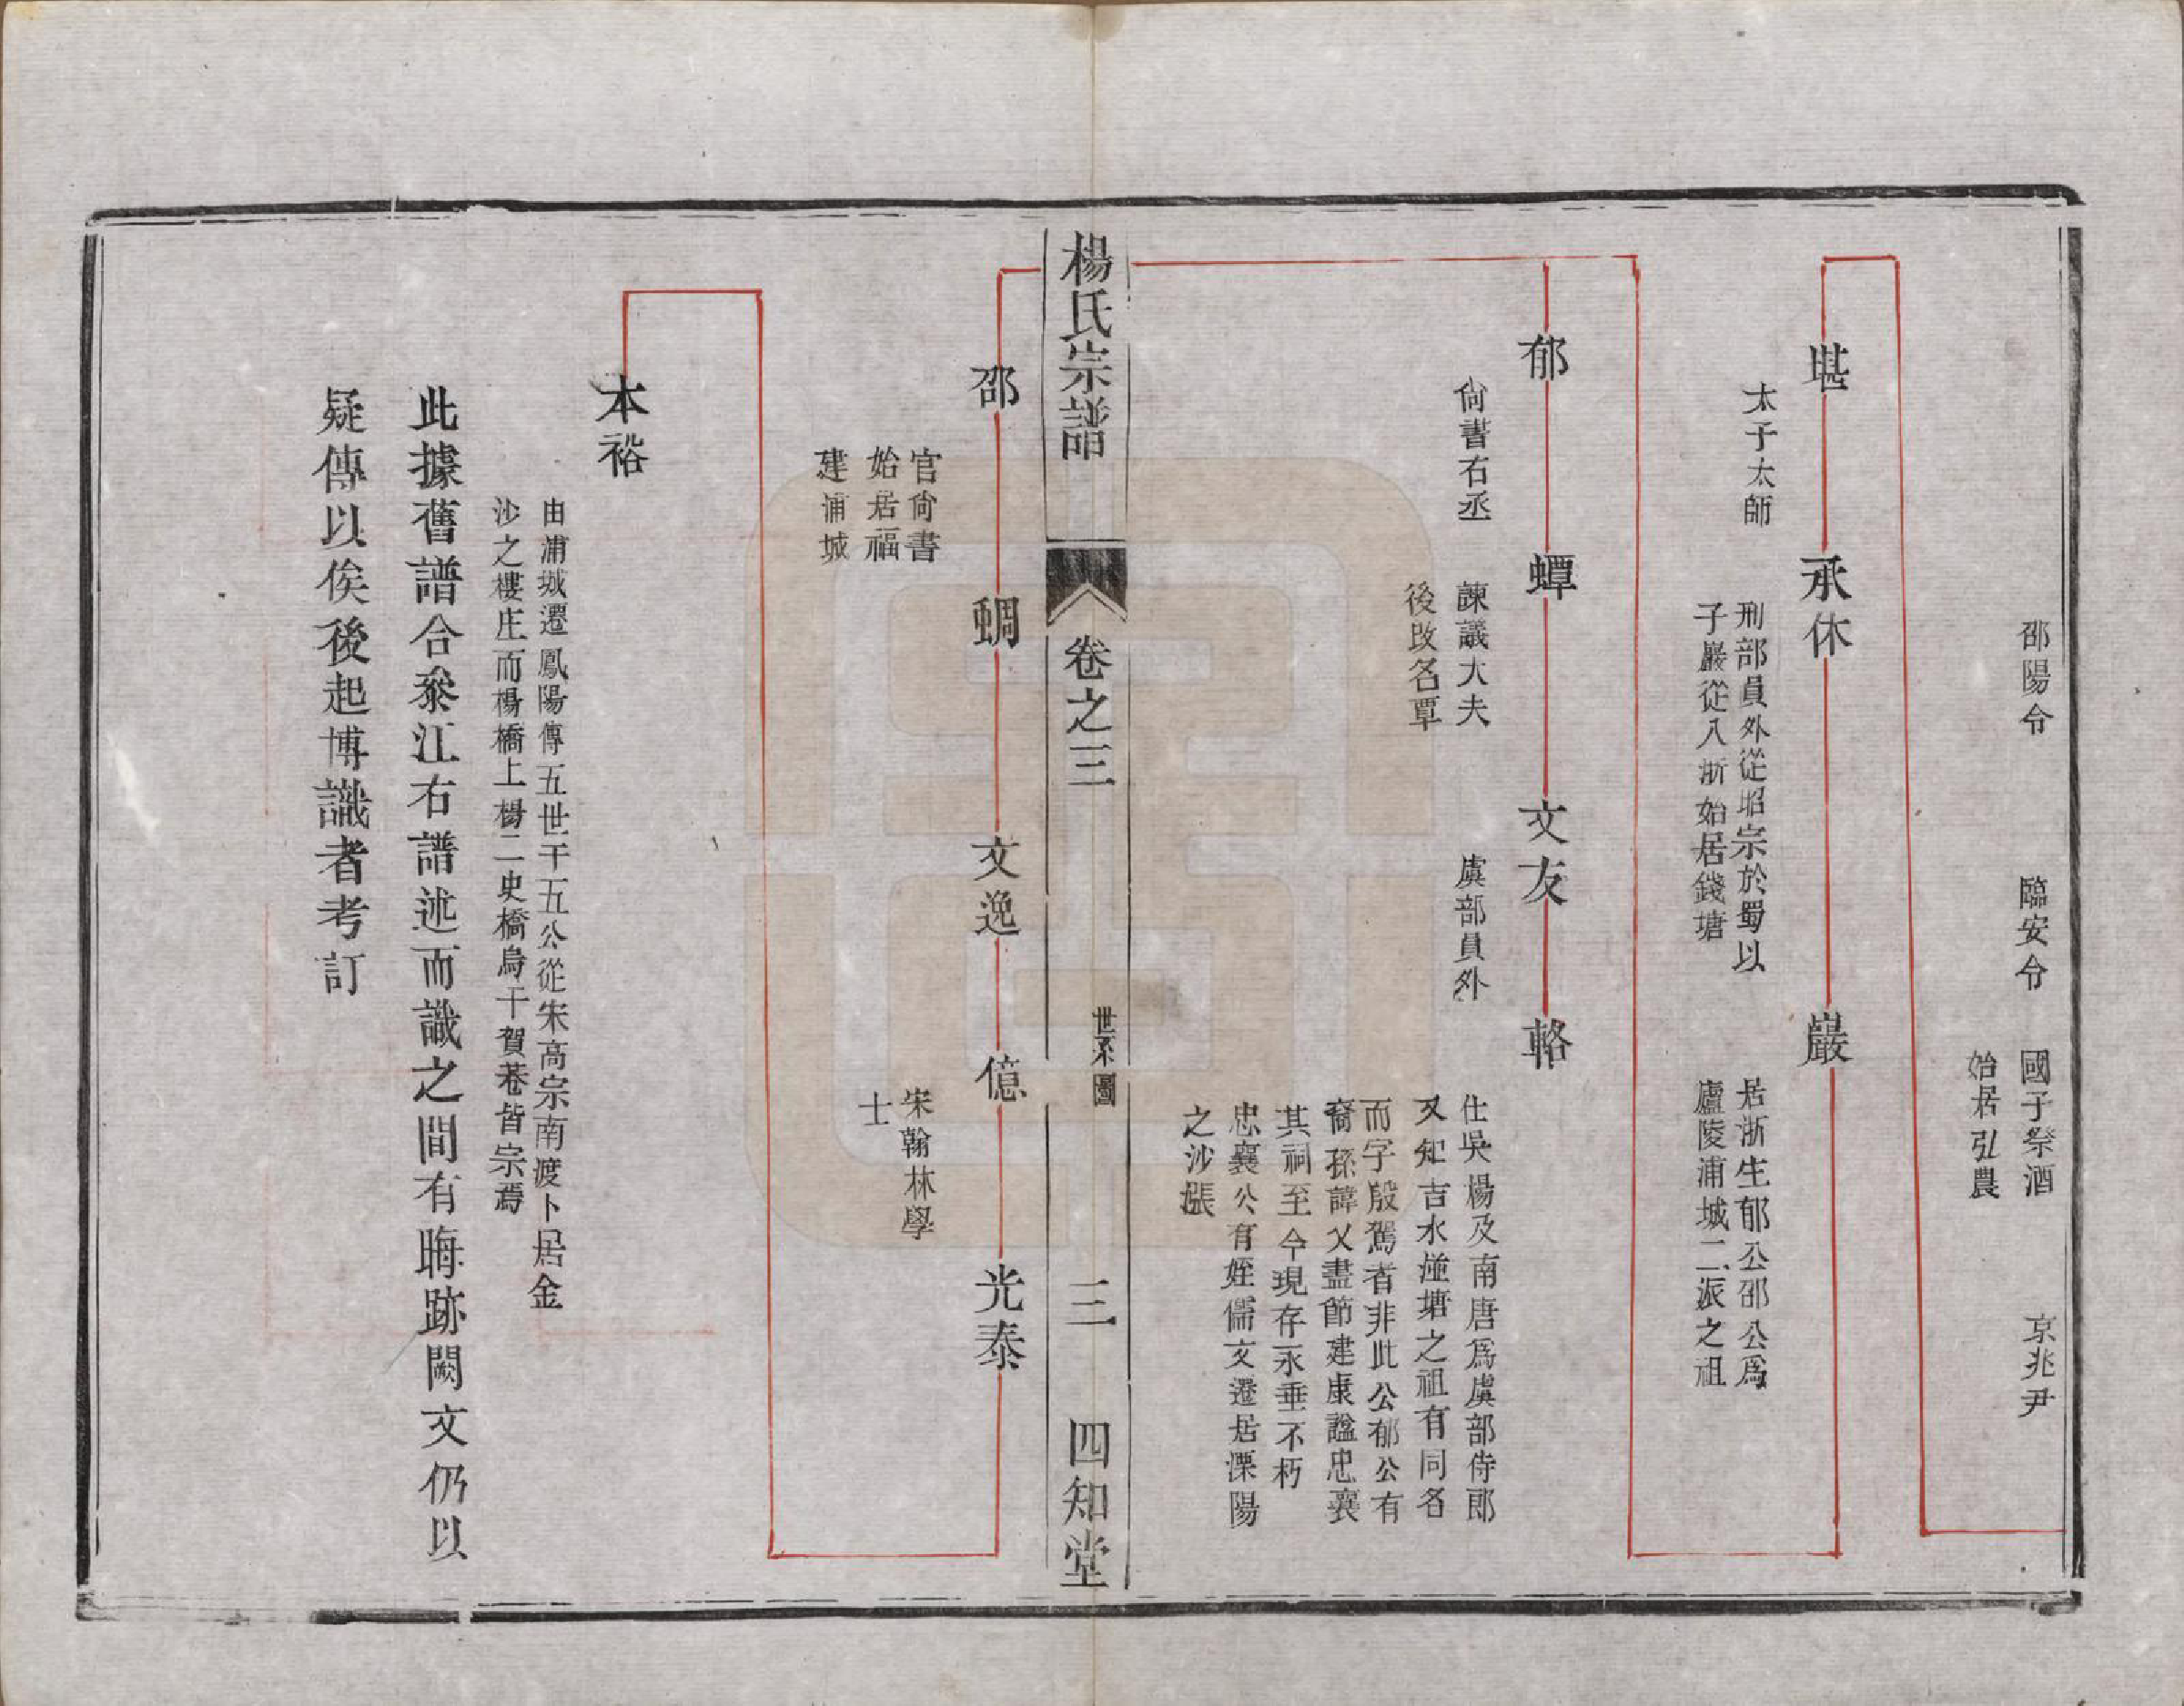 邵陽令
臨安令
國子祭酒
始居弘農
京兆尹
堪
太子太師
承休
刑部員外從昭宗於蜀以
子巖從入浙始居錢塘
巖
居浙生郁公邵公爲
廬陵浦城二派之祖
郁
尙書右丞
蟫
諫議大夫
後改名覃
文友
虞部員外
輅
仕吳楊及南唐爲虞部侍郎
又知吉水湴塘之祖有同名
而字殷駕者非此公郁公有
裔孫諱乂盡節建康諡忠襄
其祠至今現存永垂不朽
忠襄公有姪儒文遷居溧陽
之沙漲
楊氏宗譜
卷之三
世系圖
三
四知堂
邵
官尙書
始居福
建浦城
蜩
文逸
億
宋翰林學
士
光泰
本裕
由浦城遷鳳陽傳五世千五公從宋高宗南渡卜居金
沙之樓庄而楊橋上楊二史橋烏干賀巷皆宗焉
此據舊譜合叅江右譜述而識之間有晦跡闕文仍以
疑傳以俟後起博識者考訂